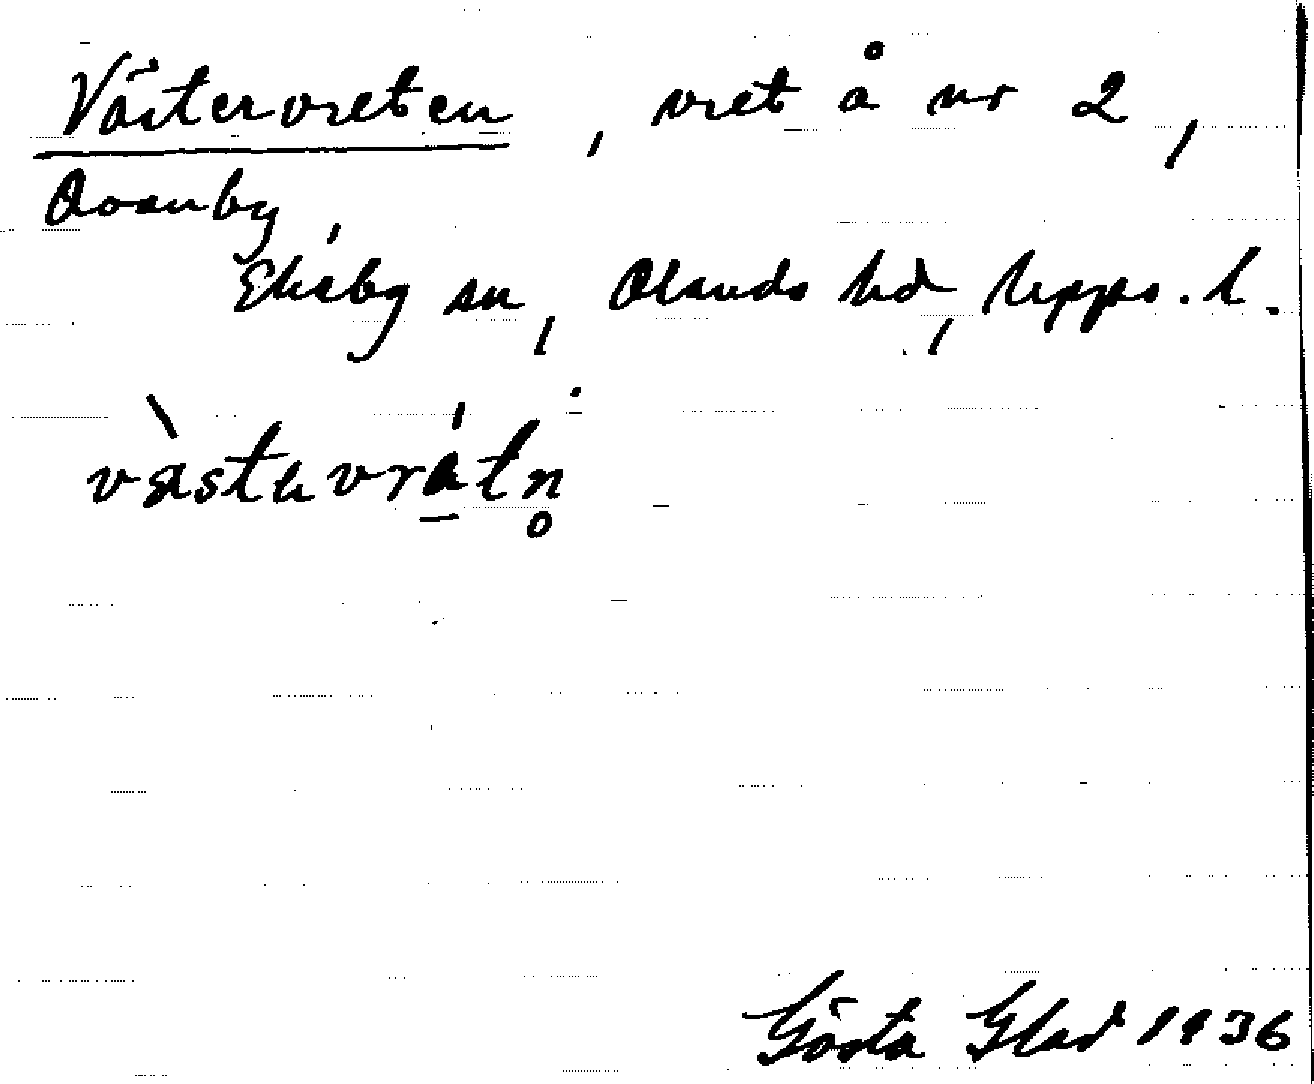 Västervreten, vret å nr 2,
Ovanby,
Ekeby sn, Olands hd, Upps. l.
västuvrätn̥
Gösta Glad 1936